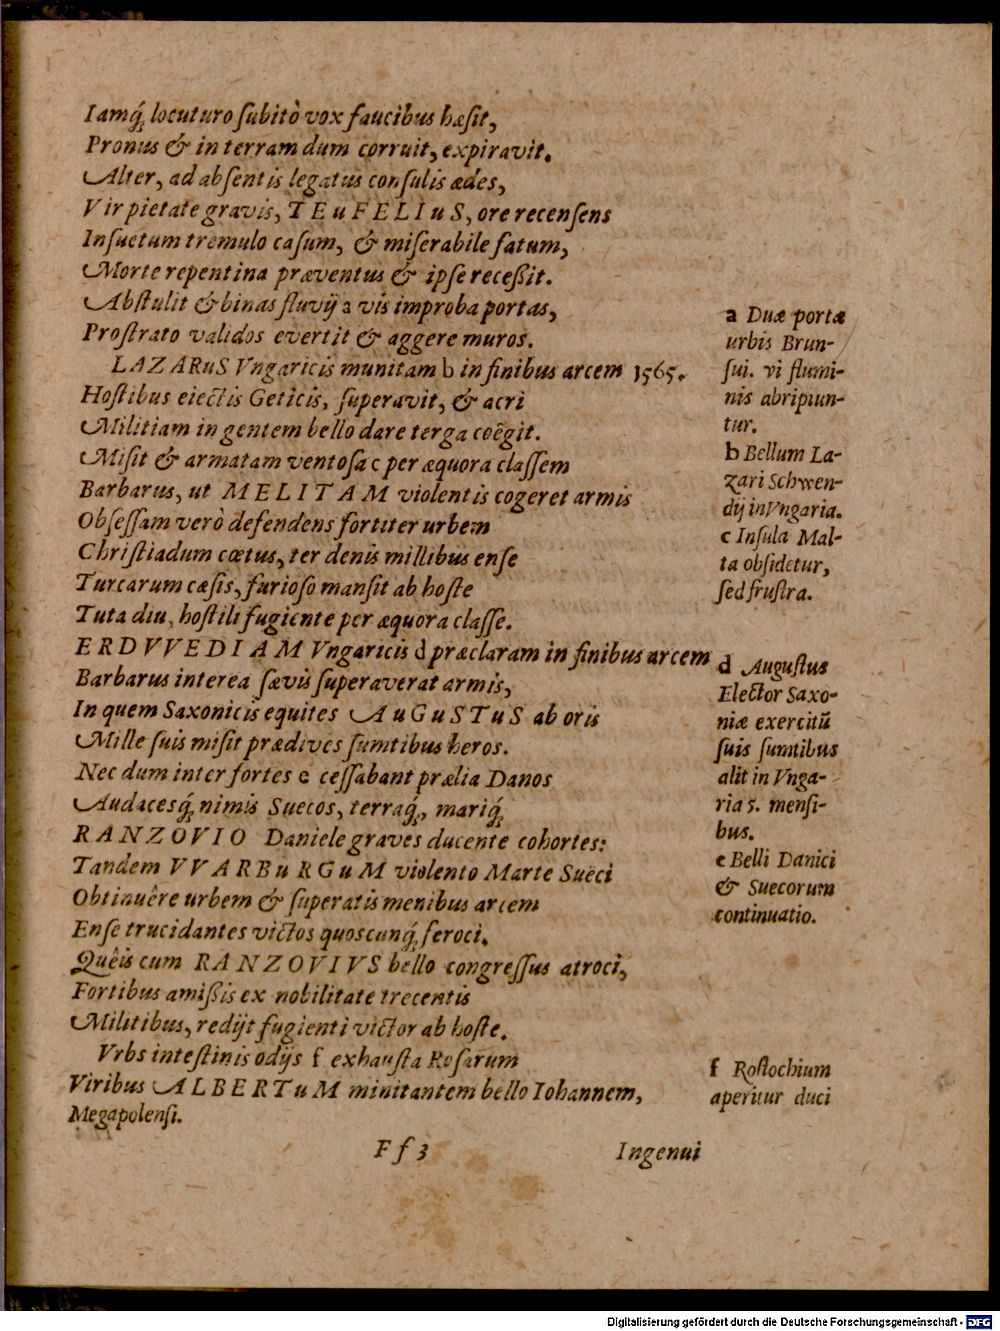 Iamq́; locuturo ſubitò vox faucibus hæſit,
Pronus & in terram dum corruit, expiravit.
Alter, ad abſentis legatus conſulis ædes,
Vir pietate gravis, TEuFELIuS, ore recenſens
Inſuetum tremulo caſum, & miſerabile fatum,
Morte repentina præventus & ipſe receßit.
Abſtulit & binas fluvij a vis improba portas,
Proſtrato validos evertit & aggere muros.
LAZARuS Vngaricis munitam b in finibus arcem 1565.
Hoſtibus eiectis Geticis, ſuperavit, & acri
Militiam ingentem bello dare terga coëgit.
Miſit & armatam ventoſa c per æquora claſſem
Barbarus, ut MELITAM violentis cogeret armis
Obſeſſam verò defendens fortiter urbem
Chriſtiadum cœtus, ter denis millibus enſe
Turcarum cæſis, furioſo manſit ab hoſte
Tuta diu, hoſtili fugiente per æquora claſſe.
ERDVVEDIAM Vngaricis d præclaram in finibus arcem
Barbarus interea ſævis ſuperaverat armis,
In quem Saxonicis equites AuGuSTuS ab oris
Mille ſuis miſit prædives ſumtibus heros.
Nec dum inter fortes e ceſſabant prælia Danos
Audacesq́; nimis Suecos, terraq́;, mariq́;
RANZOVIO Daniele graves ducente cohortes:
Tandem VVARBuRGuM violento Marte Suëci
Obtinuêre urbem & ſuperatis menibus arcem
Enſe trucidantes victos quoscunq́; feroci.
Quêis cum RANZOVIVS bello congreſſus atroci,
Fortibus amißis ex nobilitate trecentis
Militibus, redijt fugienti victor ab hoſte.
Vrbs inteſtinis odijs f exhauſta Roſarum
Viribus ALBERTuM minitantem bello Iohannem,
Megapolenſi.
Ff 3 Ingenui
a Duæ portæ
urbis Brun-
ſui. vi flumi-
nis abripiun-
tur.
b Bellum La-
zari Schwen-
dij in Vngaria.
c Inſula Mal-
ta obſidetur,
ſed fruſtra.
d Auguſtus
Elector Saxo-
niæ exercitũ
ſuis ſumtibus
alit in Vnga-
ria 5. menſi-
bus.
e Belli Danici
& Suecorum
continuatio.
f Roſtochium
aperitur duci
Digitalisierung gefördert durch die Deutsche Forschungsgemeinschaft - DFG